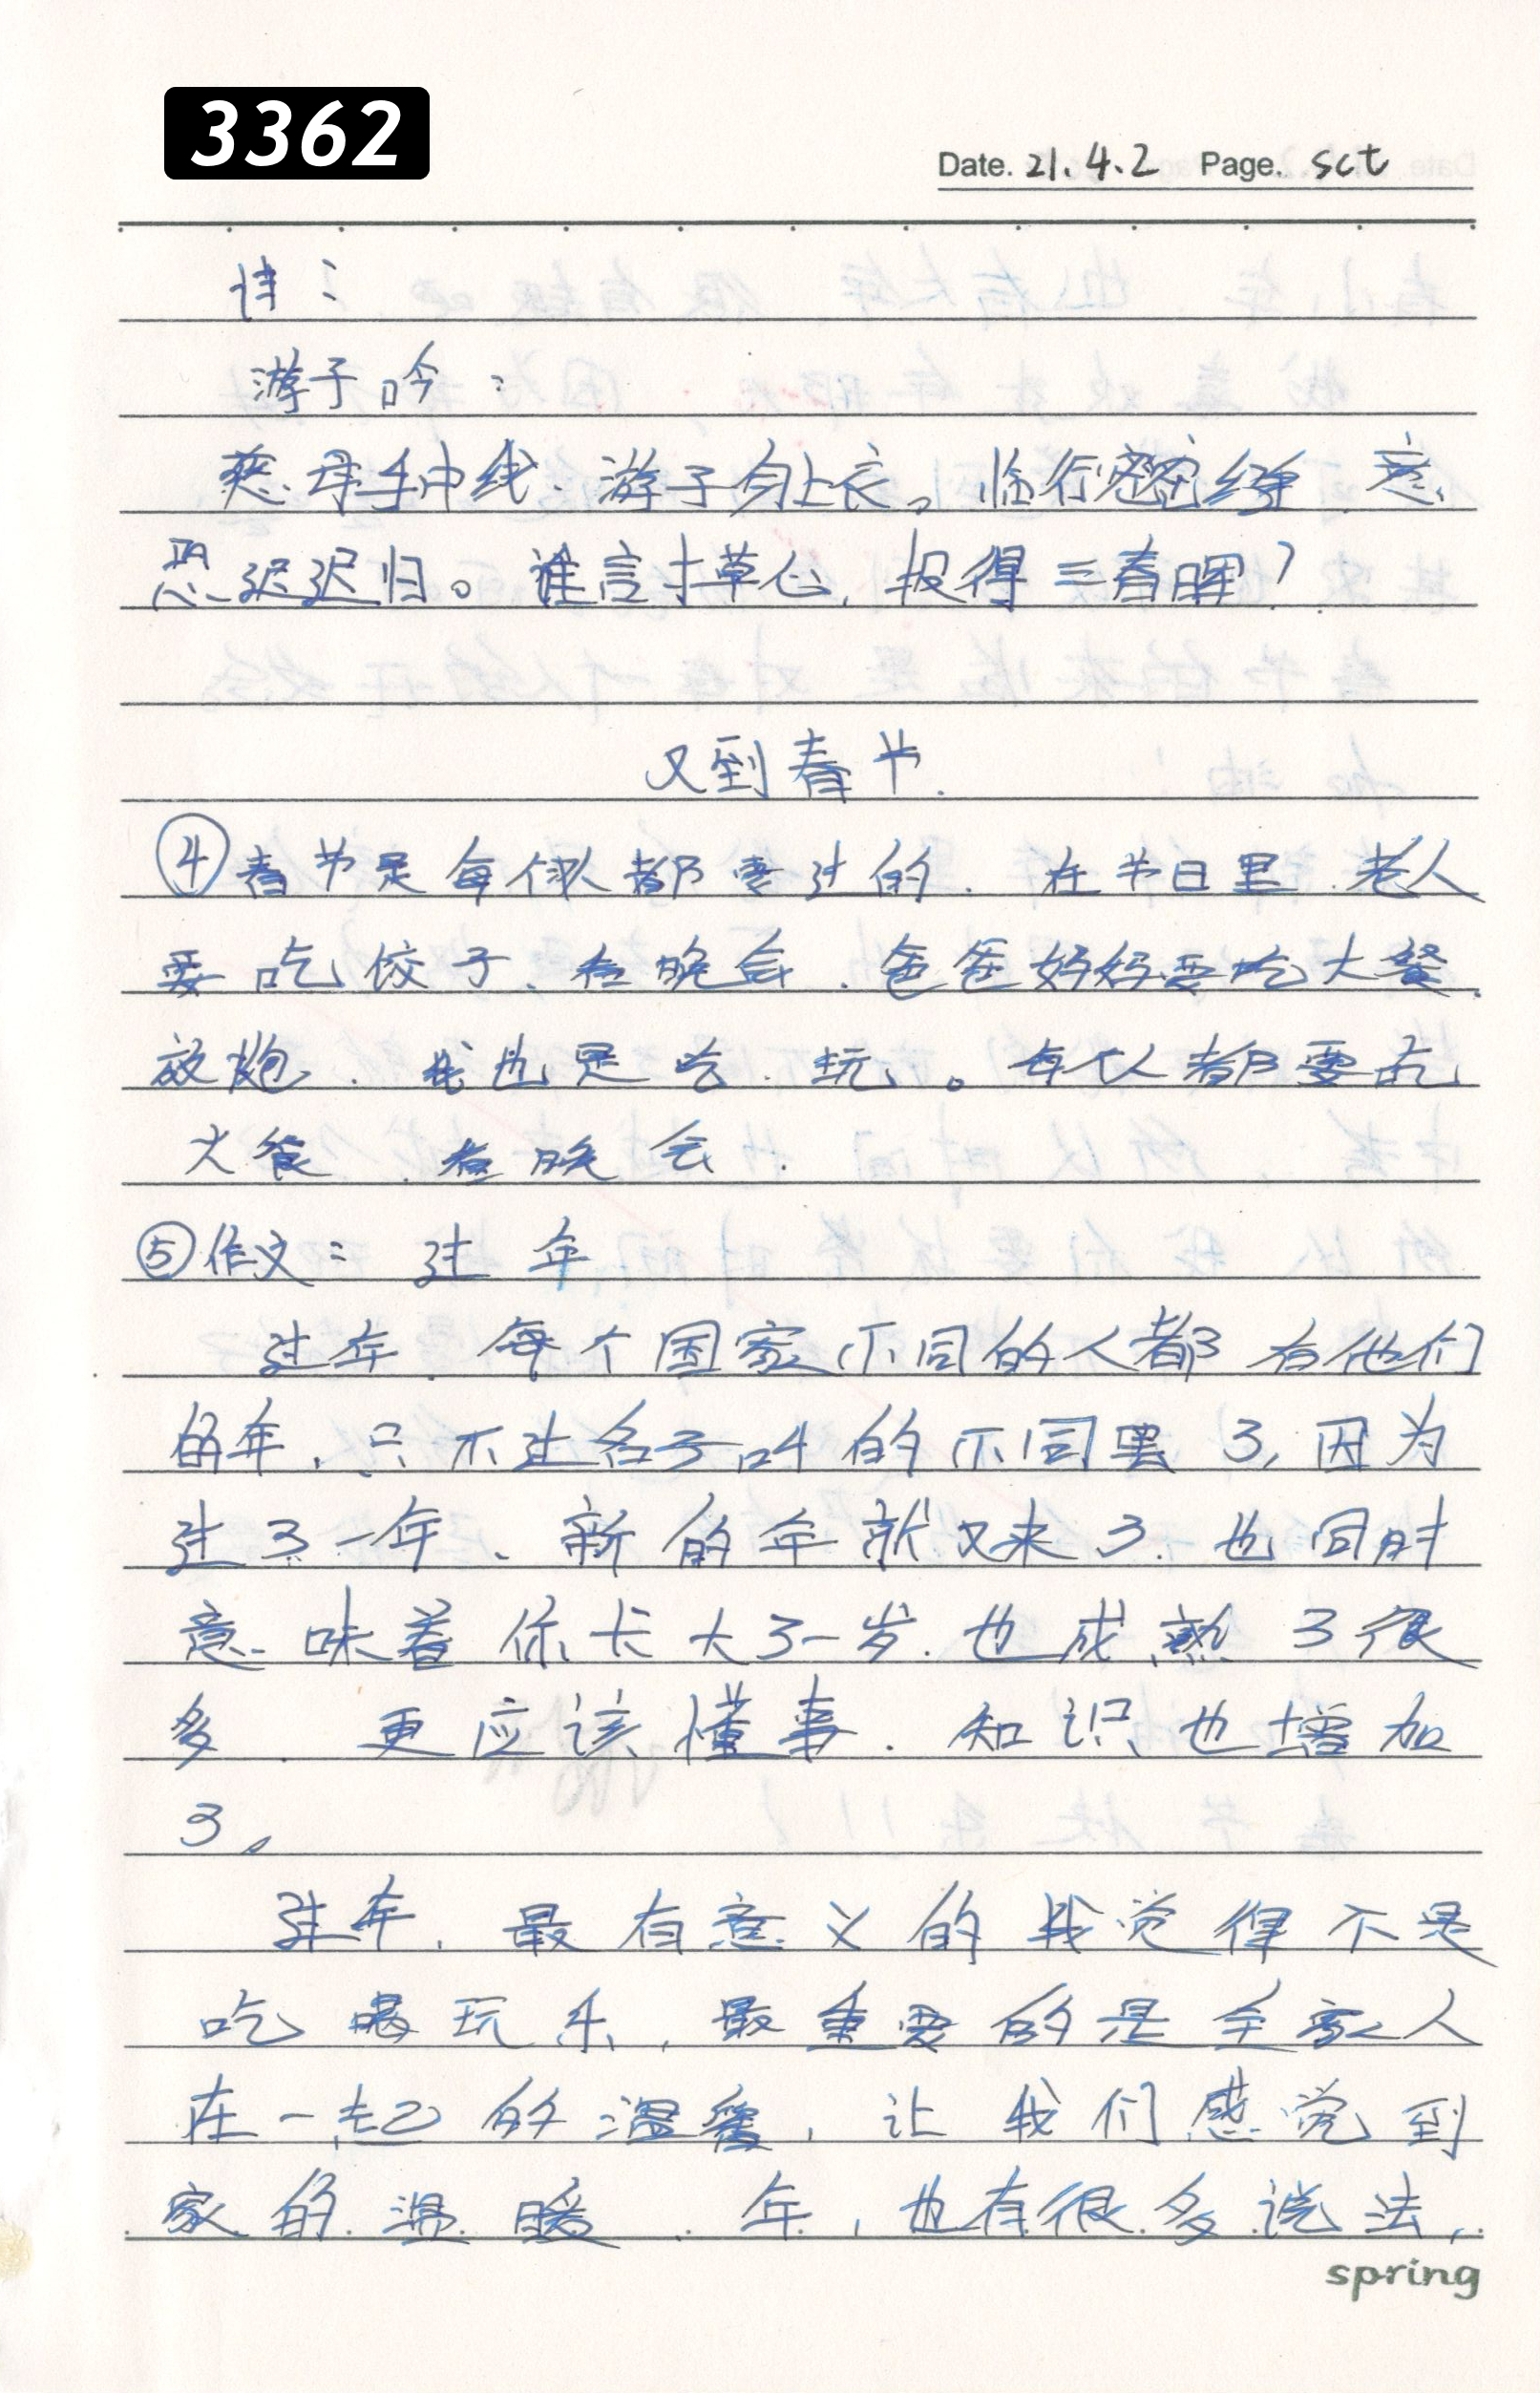 3362
Date. 21.4.2 Page. sct
诗：
游子吟：
慈母手中线、游子身上衣。临行密密缝 意
恐迟迟归。谁言寸草心，报得三春晖？
又到春节.
④春节是每个人都要过的. 在节日里.老人
要吃饺子、看晚会.爸爸妈妈要吃大餐.
放炮. 我也是吃.玩。每个人都要吃
大餐.看晚会.
⑤作文：过年
过年.每个国家不同的人都有他们
的年.只不过名子叫的不同罢了,因为
过了一年、新的年就又来了.也同时
意味着你长大了一岁.也成熟了很
多. 更应该懂事.知识也增加
了。
过年.最有意义的我觉得不是
吃喝玩乐,最重要的是全家人
在一起的温暖,让我们感觉到
家的温暖.年,也有很多说法,
spring